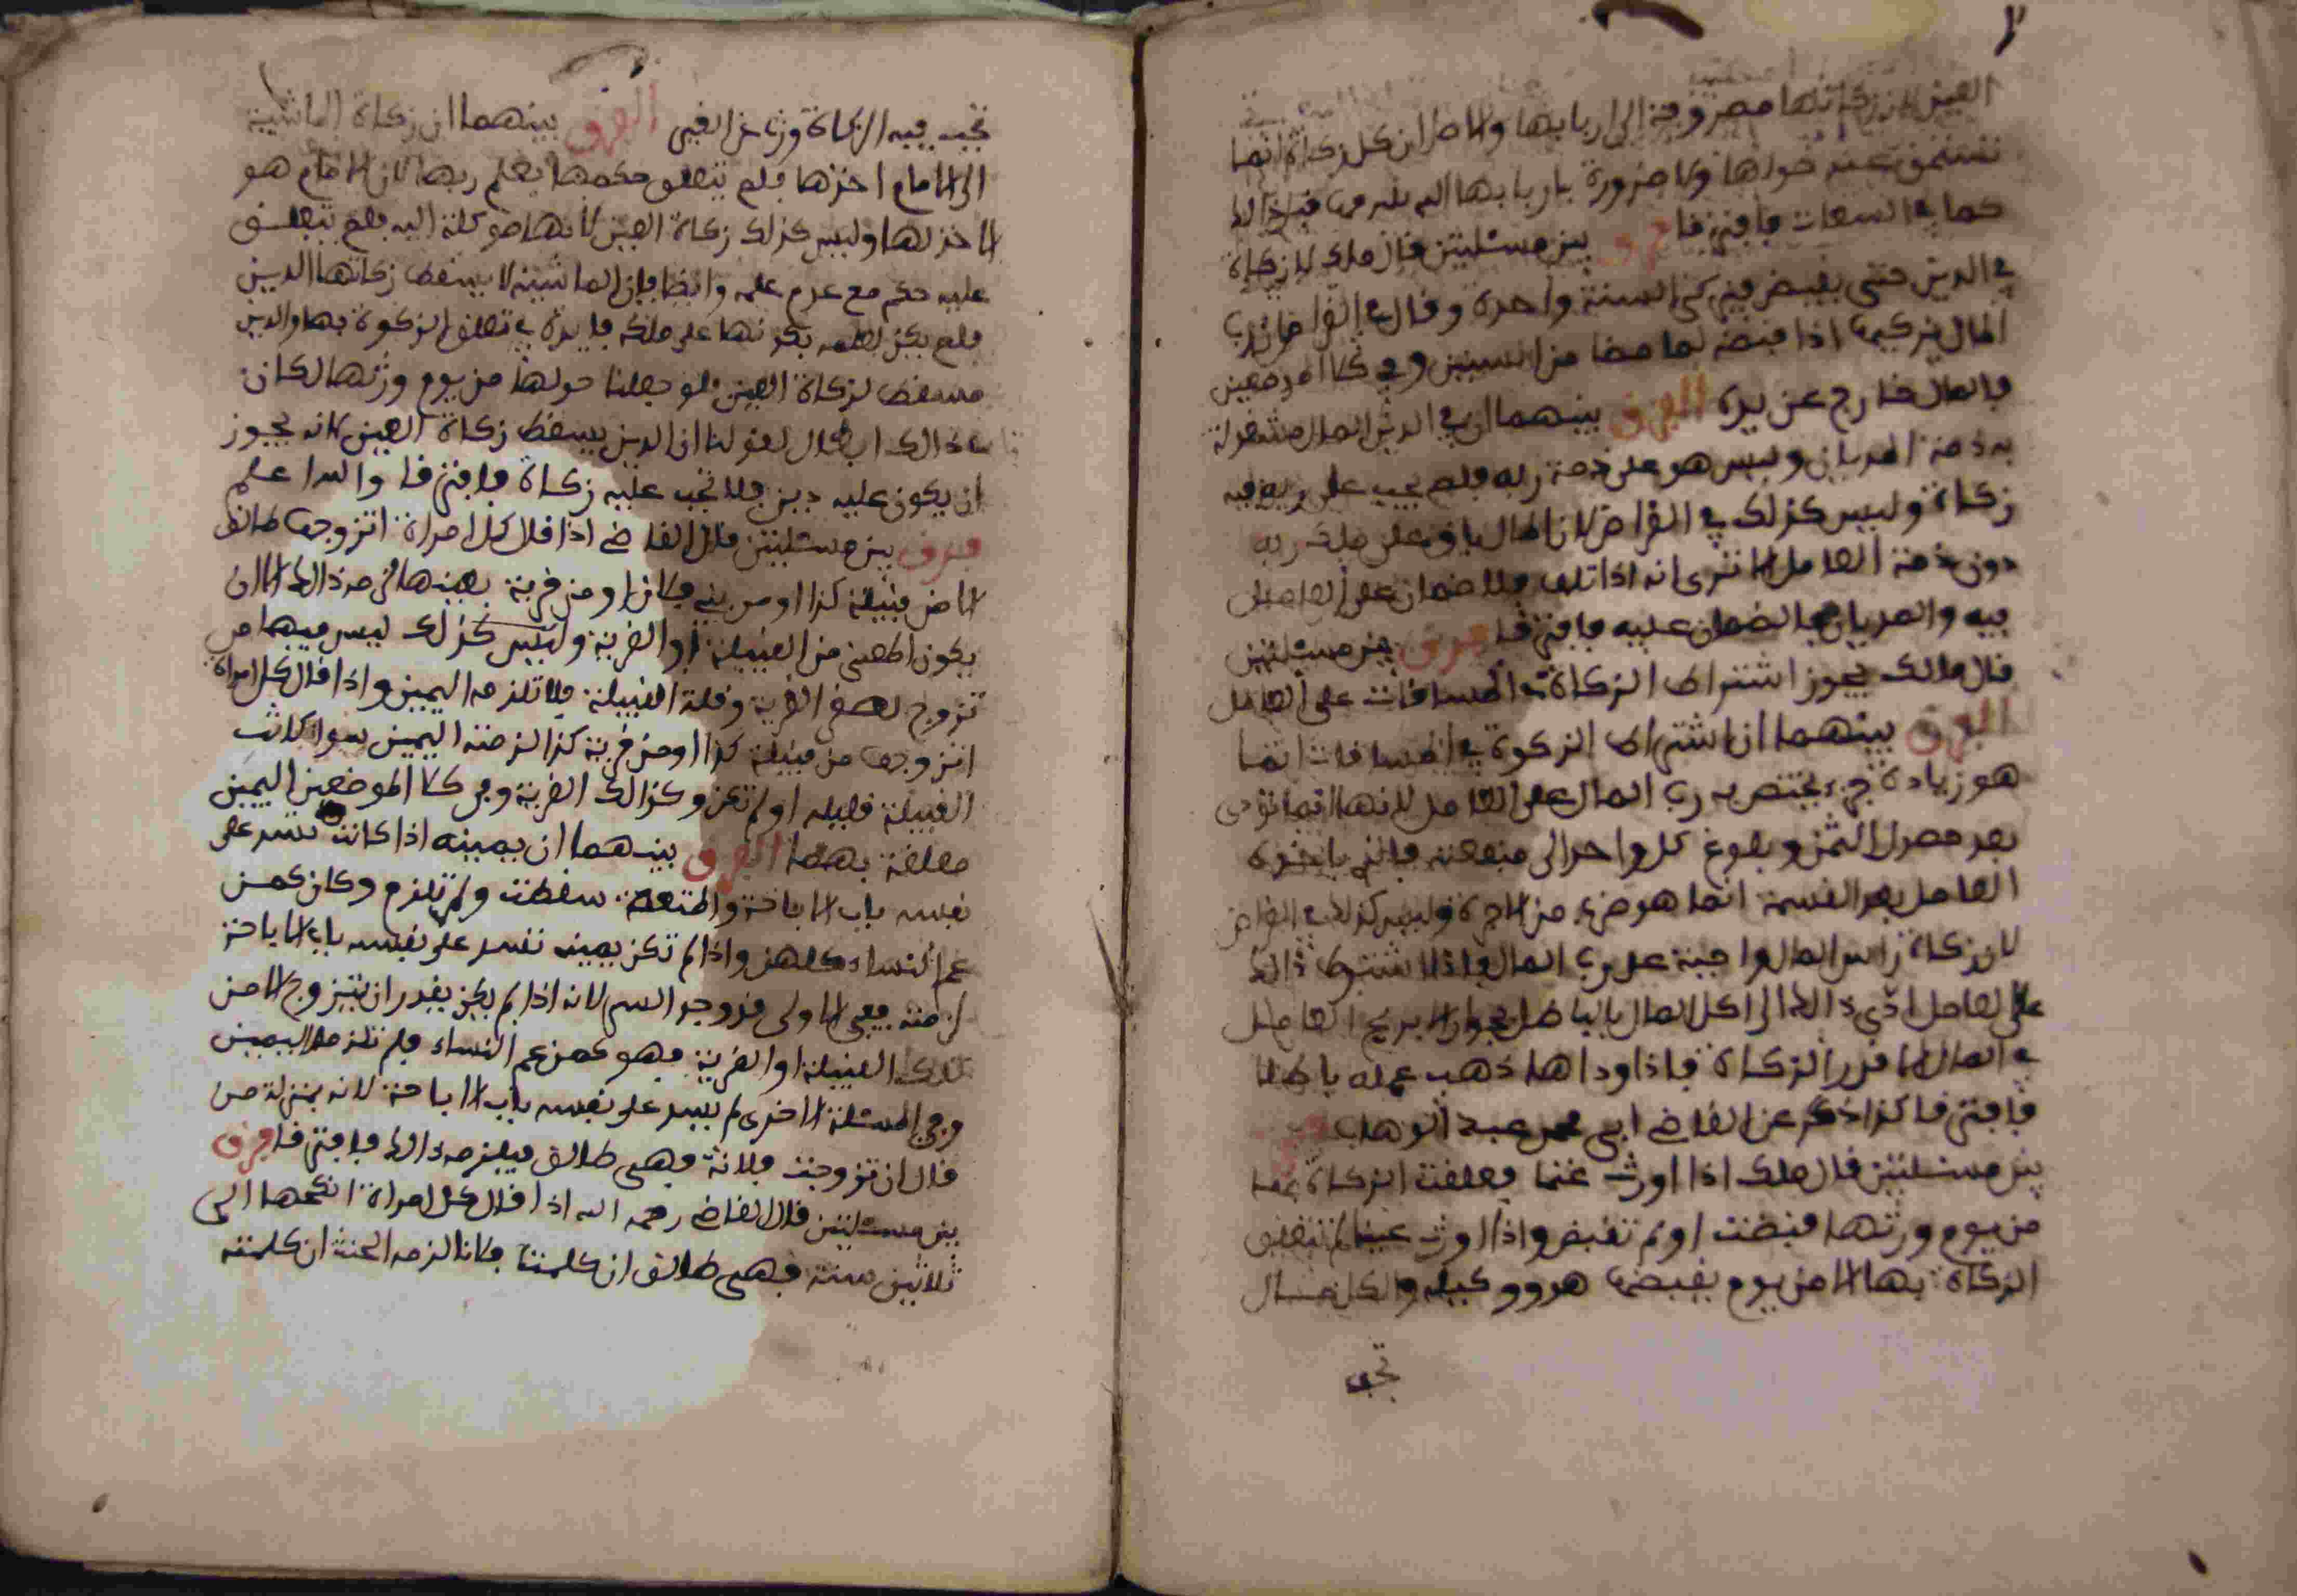 العين لان زكاتها مصروفة الى اربابها والاصل ان كل زكاة انما
تستحق عند حولها ولا ضرورة باربابها الى قبل ذالك
كما في السعات فافترفا فرق بين مسئلتين قال ملك لا زكاة
في الدين حتى يقبض فيزكى لسنة واحدة وقال في القراض ان رب
المال يزكيه اذا قبضه لما مضا من السنين وفي كلا الموضعين
فالمال خارج عن يده الفرق بينهما ان في الدين المال مشغولة
به ذمة المديان وليس هو على ذمة ربه فلم يجب على ربه فيه
زكاة وليس كذلك في القراض لان المال باق على ملك ربه
دون ذمة العامل الا ترى انه اذا تلف فلا ضمان على العامل
فيه والمديان فالضمان عليه فافترفا فرق بين مسئلتين
قال مالك يجوز اشتراط الزكاة في المسافات على العامل
الفرق بينهما ان اشتراط الزكوة في المسافات انما
هو زيادة جزء يختص به رب المال على العامل لانها انما تؤدى
بعد حصول الثمن وبلوغ كل واحد الى منفعته فالذي ياخذه
العامل بعد القسمة انما هو من الاجرة وليس كذلك في القراض
لان زكاة راس المال واجبة على رب المال فاذا اشترط ذالك
على العامل ادى ذالك الى اكل المال بالباطل لجواز الا يربح العامل
في المال الا قدر الزكاة فاذا وداها ذهب عمله باطلا
فافترفا كذا ذكر عن القاضي ابي محمد عبد الوهاب فرق
بين مسئلتين قال ملك اذا اورث غنما فعلقت الزكاة بها
من يوم ورثها قبضت او لم تقبض واذا اورث عينا لم تتعلق
الزكاة بها الا من يوم يقبضها هو ووكيله والكل مال
تجب
تجب فيه الزكاة وزمن الغيى الفرق بينهما ان زكاة الماشية
الى الامام اخذها فلم يتعلق حكمها بعلم ربها لان الامام هو
الاخذ لها وليس كذلك زكاة العين لانها موكلة اليه فلم يتعلق
عليه حكم مع عدم علمه وايضا فان الماشية لا يسقط زكاتها الدين
فلم يكن لعلمه بكونها على ملكه فايدة في تعلق الزكوة بها والدين
مسقط لزكاة العين فلو جعلنا حولها من يوم ورثها لكان
في ذالك ابطال لقولنا ان الدين يسقط زكاة العين لانه يجوز
ان يكون عليه دين فلا تجب عليه زكاة فافترفا والله اعلم
فرق بين مسئلتين قال القاضي اذا قال كل امراة اتزوجها طالق
الا من قبيلة كذا او من بني فلان او من قرية بعينها لزمه ذالك الا ان
يكون اطعنى من القبيلة او القرية وليس كذلك ليس فيهما من
تزوج لصغر القرية وقلة القبيلة فلا تلزمه اليمين واذا قال كل امراة
اتزوجها من قبيلة كذا او من قرية كذا لزمته اليمين سوا كانت
القبيلة قليله او لم تكن وكذالك القرية وفي كلا الموضعين اليمين
معلقة بهما الفرق بينهما ان يمينه اذا كانت تسد على
نفسه باب الاباحة والمتعة سقطت ولم تلزم وكان كمن
عم النساء كلهن واذا لم تكن يمينه تسد على نفسه باب الاباحة
لزمته ففي الاولى قد وجد السد لانه اذا لم يكن يقدر ان يتزوج الا من
تلك القبيلة او القرية فهو كمن عم النساء فلم تلزمه اليمين
وفي المسئلة الاخرى لم يسد على نفسه باب الاباحة لانه بمنزلة من
قال ان تزوجت فلانة فهي طالق فيلزمه ذالك فافترفا فرق
بين مسئلتين قال القاضي رحمه الله اذا قال كل امراة انكحها الى
ثلاثين سنة فهي طالق ان كلمت فلانا لزمه الحنث ان كلمته